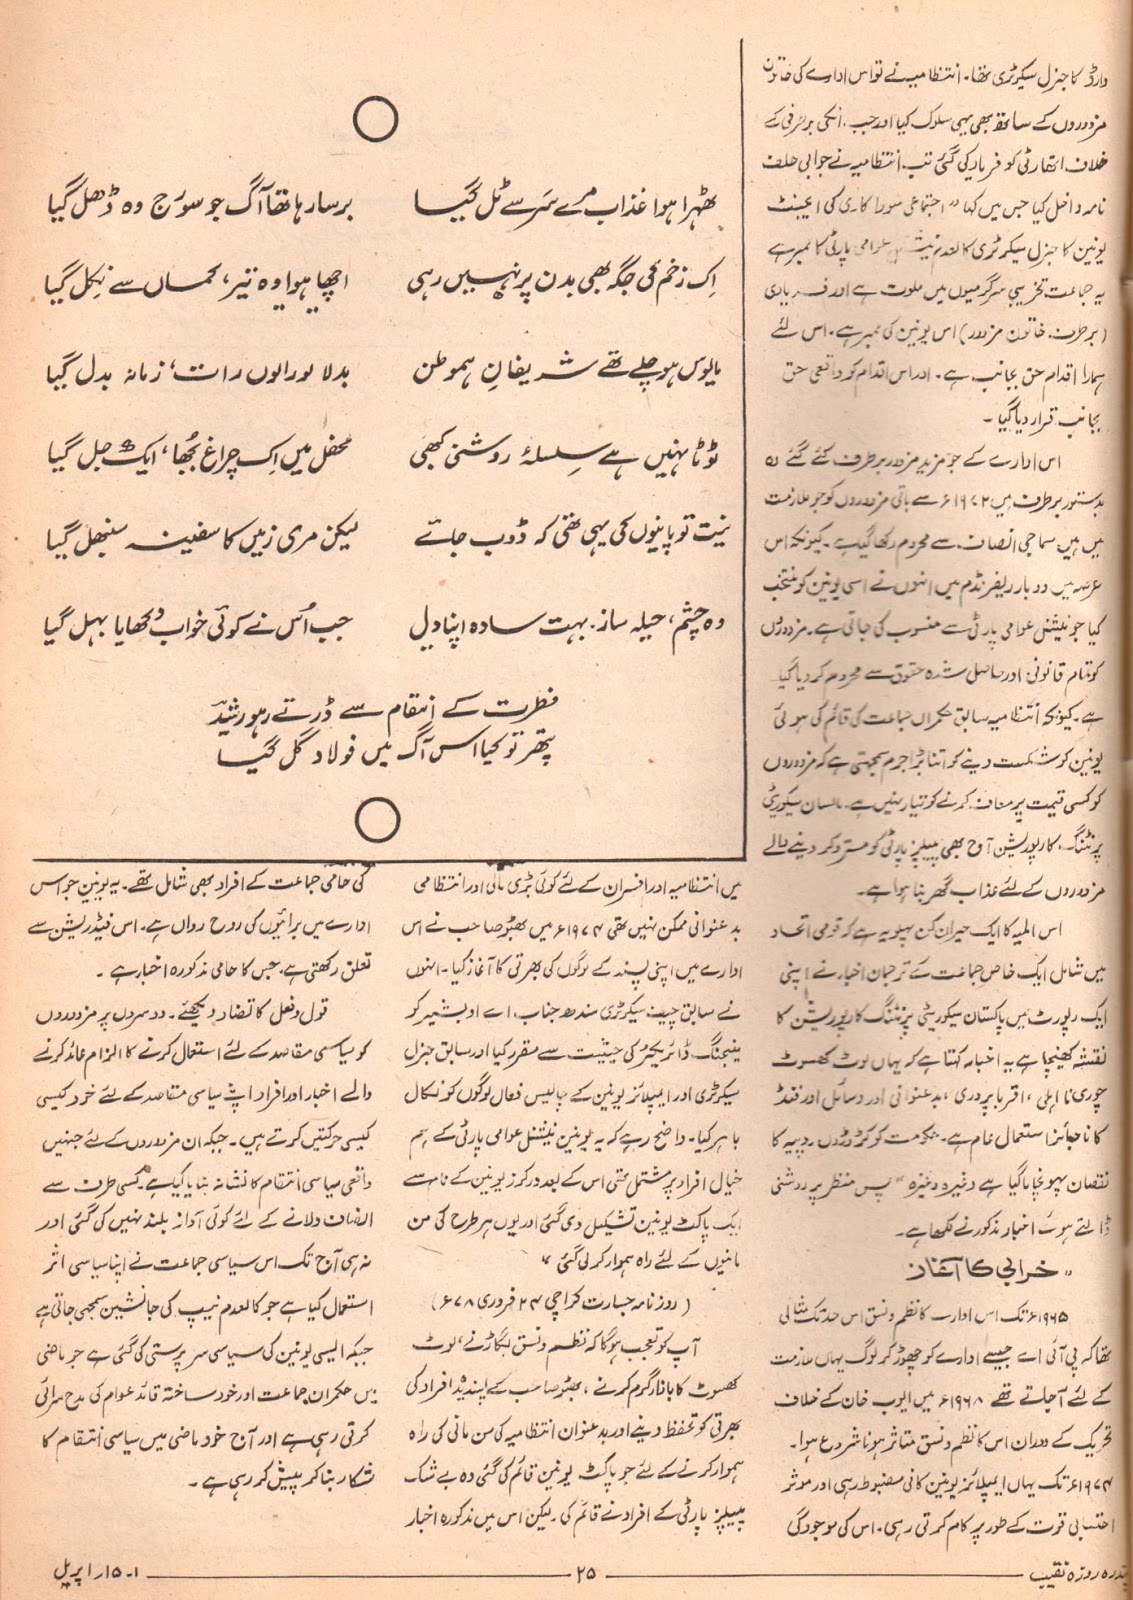 وارڈ کا جنرل سیکرٹری تھا۔ انتظامیہ نے تو اس ادارے کی خاتون
مزدوروں کے ساتھ بھی یہی سلوک کیا اور جب انکی برطرفی کے
خلاف اتھارٹی کو فریاد کی گئی تب انتظامیہ نے جوابی حلف
نامہ داخل کیا جس میں کہا "اجتماعی سودا کاری کی ایجنٹ
یونین کا جنرل سیکرٹری کالعدم نیشنل عوامی پارٹی کا ممبر ہے
یہ جماعت تخریبی سرگرمیوں میں ملوث ہے اور فریادی
(برطرف خاتون مزدور) اس یونین کی ممبر ہے۔ اس لئے
ہمارا اقدام حق بجانب ہے۔ اور اس اقدام کو واقعی حق
بجانب قرار دیا گیا۔
اس ادارے کے جو مزید مزدور برطرف کئے گئے وہ
بدستور برطرف ہیں ۱۹۷۲ء سے باقی مزدوروں کو جو ملازمت
میں ہیں سماجی انصاف سے محروم رکھا گیا ہے۔ کیونکہ اس
عرصہ میں دو بار ریفرنڈم میں انہوں نے اسی یونین کو منتخب
کیا جو نیشنل عوامی پارٹی سے منسوب کی جاتی ہے۔ مزدوروں
کو تمام قانونی اور حاصل شدہ حقوق سے محروم کر دیا گیا
ہے۔ کیونکہ انتظامیہ سابق حکمراں جماعت کی قائم کی ہوئی
یونین کو شکست دینے کو اتنا بڑا جرم سمجھتی ہے کہ مزدوروں
کو کسی قیمت پر معاف کرنے کو تیار نہیں ہے۔ پاکستان سیکورٹی
پرنٹنگ کارپوریشن آج بھی پیپلز پارٹی کو مسترد کر دینے والے
مزدوروں کے لئے عذاب گھر بنا ہوا ہے۔
اس المیہ کا ایک حیران کن پہلو یہ ہے کہ قومی اتحاد
میں شامل ایک خاص جماعت کے ترجمان اخبار نے اپنی
ایک رپورٹ میں پاکستان سیکوریٹی پرنٹنگ کارپوریشن کا
نقشہ کھینچا ہے یہ اخبار کہتا ہے کہ یہاں لوٹ کھسوٹ
چوری نااہلی، اقربا پروری، بدعنوانی اور وسائل اور فنڈ
کا ناجائز استعمال عام ہے۔ حکومت کو کروڑوں روپیہ کا
نقصان پہونچایا گیا ہے وغیرہ وغیرہ" پس منظر پر روشنی
ڈالتے ہوئے اخبار مذکور نے لکھا ہے۔
"خرابی کا آغاز
۱۹۶۵ء تک اس ادارے کا نظم و نسق اس حد تک مثالی
تھا کہ پی آئی اے جیسے ادارے کو چھوڑ کر لوگ یہاں ملازمت
کے لئے آجاتے تھے ۱۹۶۸ء میں ایوب خان کے خلاف
تحریک کے دوران اس کا نظم و نسق متاثر ہونا شروع ہوا۔
۱۹۷۴ء تک یہاں ایمپلائز یونین کافی مضبوط رہی اور موثر
احتسابی قوت کے طور پر کام کرتی رہی۔ اس کی موجودگی
ٹھہرا ہوا عذاب مرے سر سے ٹل گیا
برسا رہا تھا آگ جو سورج وہ ڈھل گیا
اِک زخم کی جگہ بھی بدن پر نہیں رہی
اچھا ہوا وہ تیر، کماں سے نکل گیا
مایوس ہو چلے تھے شریفانِ ہموطن
بدلا نورالوں رات، زمانہ بدل گیا
ٹوٹا نہیں ہے سلسلۂ روشنی کبھی
محفل میں اِک چراغ بُجھا، ایک جل گیا
نیت تو پانیوں کی یہی تھی کہ ڈوب جائے
لیکن مری زمیں کا سفینہ سنبھل گیا
وہ چشم، حیلہ ساز۔ بہت سادہ اپنا دل
جب اُس نے کوئی خواب دکھایا بہل گیا
فطرت کے انتقام سے ڈرتے رہو رشید
پتھر تو کیا اس آگ میں فولاد گل گیا
میں انتظامیہ اور افسران کے لئے کوئی بڑی مالی اور انتظامی
بدعنوانی ممکن نہیں تھی ۱۹۷۴ء میں بھٹو صاحب نے اس
ادارے میں اپنی پسند کے لوگوں کی بھرتی کا آغاز کیا۔ انہوں
نے سابق چیف سیکرٹری سندھ جناب اے او بشیر کو
مینجنگ ڈائریکٹر کی حیثیت سے مقرر کیا اور سابق جنرل
سیکرٹری اور ایمپلائز یونین کے چالیس فعال لوگوں کو نکال
باہر کیا۔ واضح رہے کہ یہ یونین نیشنل عوامی پارٹی کے ہم
خیال افراد پر مشتمل تھی اس کے بعد ورکرز یونین کے نام سے
ایک پاکٹ یونین تشکیل دی گئی اور یوں ہر طرح کی من
مانیوں کے لئے راہ ہموار کر لی گئی"
(روزنامہ جسارت کراچی ۲۴ فروری ۷۸ء)
آپ کو تعجب ہوگا کہ نظم و نسق بگاڑنے، لوٹ
کھسوٹ کا بازار گرم کرنے، بھٹو صاحب کے پسندیدہ افراد کی
بھرتی کو تحفظ دینے اور بدعنوان انتظامیہ کی من مانی کی راہ
ہموار کرنے کے لئے جو پاکٹ یونین قائم کی گئی وہ بے شک
پیپلز پارٹی کے افراد نے قائم کی۔ لیکن اس میں مذکورہ اخبار
کی حامی جماعت کے افراد بھی شامل تھے۔ یہ یونین جو اس
ادارے میں برائیوں کی روح رواں ہے۔ اس فیڈریشن سے
تعلق رکھتی ہے۔ جس کا حامی مذکورہ اخبار ہے۔
قول و فعل کا تضاد دیکھئے۔ دوسروں پر مزدوروں
کو سیاسی مقاصد کے لئے استعمال کرنے کا الزام عائد کرنے
والے اخبار اور افراد اپنے سیاسی مقاصد کے لئے خود کیسی
کیسی حرکتیں کرتے ہیں۔ جبکہ ان مزدوروں کے لئے جنہیں
واقعی سیاسی انتقام کا نشانہ بنایا گیا ہے کسی طرف سے
انصاف دلانے کے لئے کوئی آواز بلند نہیں کی گئی اور
نہ ہی آج تک اس سیاسی جماعت نے اپنا سیاسی اثر
استعمال کیا ہے جو کالعدم نیپ کی جانشین سمجھی جاتی ہے
جبکہ ایسی یونین کی سیاسی سرپرستی کی گئی ہے جو ماضی
میں حکمران جماعت اور خود ساختہ قائد عوام کی مدح سرائی
کرتی رہی ہے اور آج خود ماضی میں سیاسی انتقام کا
شکار بنا کر پیش کر رہی ہے۔
پندرہ روزہ نقیب
۲۵
۱۔۱۵ اپریل